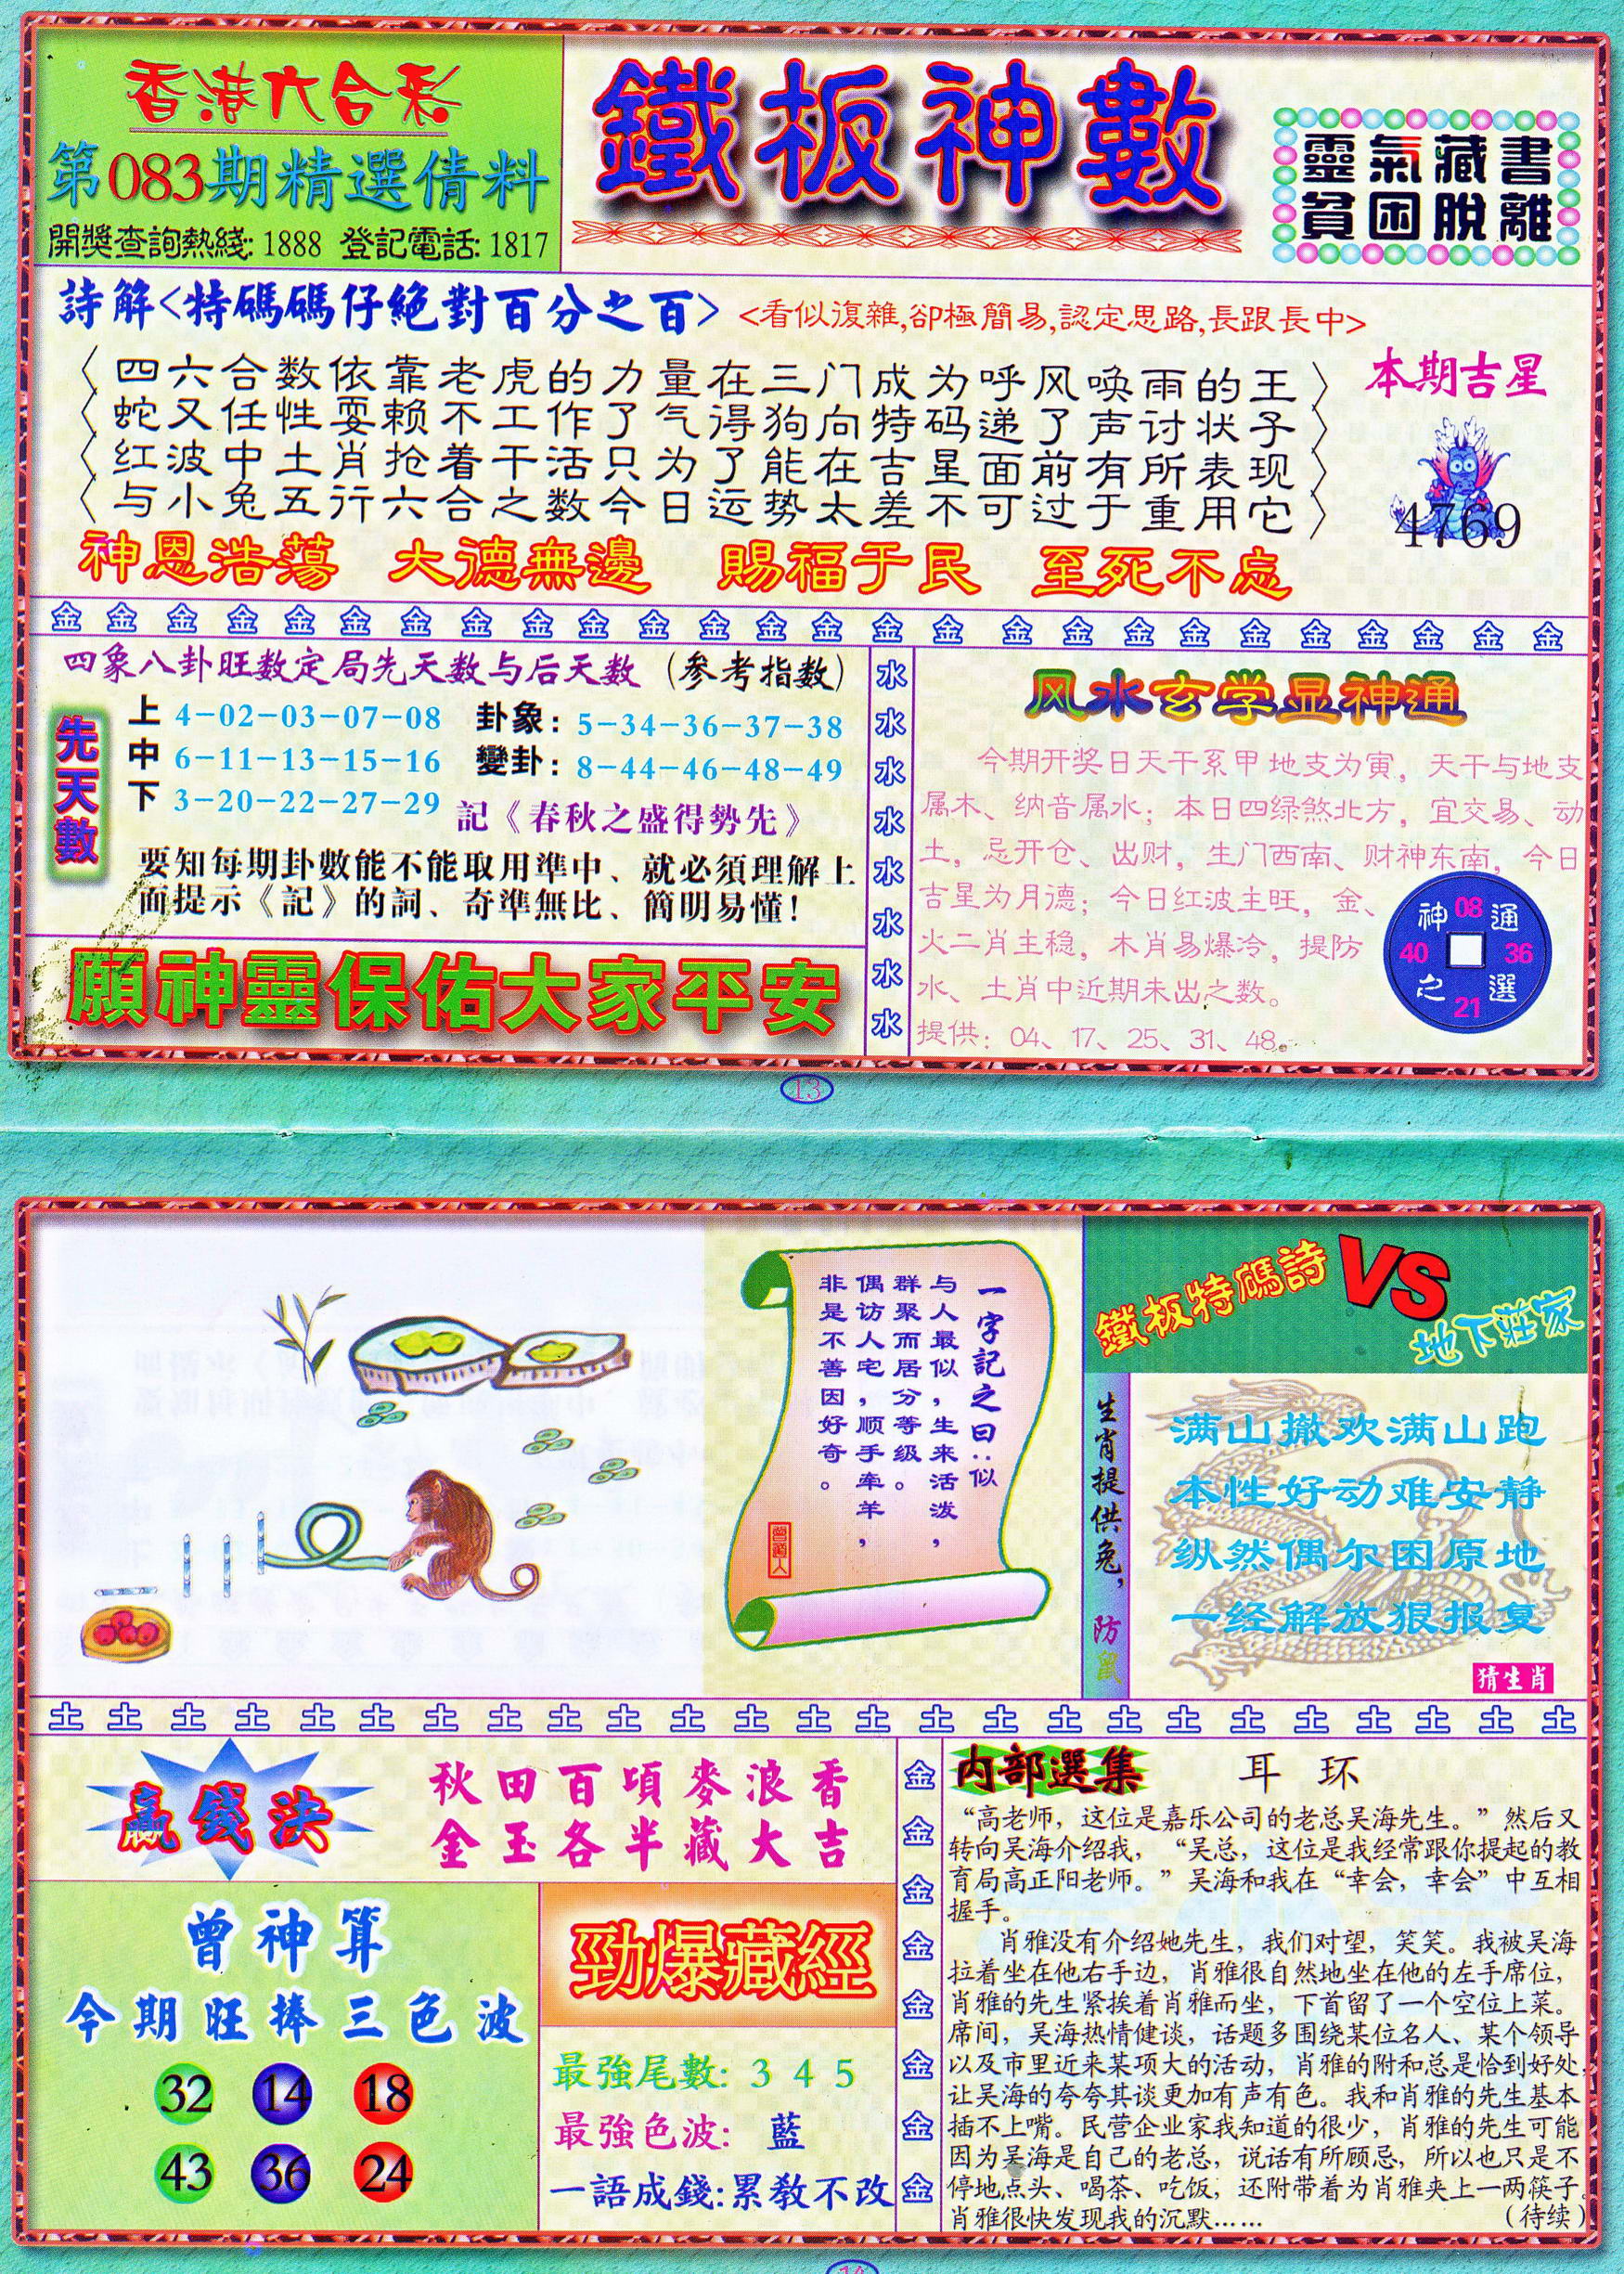 香港六合彩
第083期精選倩料
開獎查詢熱綫: 1888 登記電話: 1817
鐵板神數
靈氣藏書
貧困脫離
詩解<特碼碼仔絕對百分之百>
<看似復雜,卻極簡易,認定思路,長跟長中>
四六合数依靠老虎的力量在三门成为呼风唤雨的王
蛇又任性耍赖不工作了气得狗向特码递了声讨状子
红波中土肖抢着干活只为了能在吉星面前有所表现
与小兔五行六合之数今日运势太差不可过于重用它
本期吉星
4769
神恩浩蕩 大德無邊 賜福于民 至死不忘
金 金 金 金 金 金 金 金 金 金 金 金 金 金 金 金 金 金 金 金 金 金 金 金 金 金
四象八卦旺数定局先天数与后天数(参考指数)
先天數
上 4-02-03-07-08 卦象: 5-34-36-37-38
中 6-11-13-15-16 變卦: 8-44-46-48-49
下 3-20-22-27-29 記《春秋之盛得勢先》
要知每期卦數能不能取用準中、就必須理解上
面提示《記》的詞、奇準無比、簡明易懂!
願神靈保佑大家平安
水
水
水
水
水
水
水
水
风水玄学显神通
今期开奖日天干系甲地支为寅，天干与地支
属木、纳音属水；本日四绿煞北方，宜交易、动
土，忌开仓、出财，生门西南、财神东南，今日
吉星为月德；今日红波主旺，金、
火二肖主稳，木肖易爆冷，提防
水、土肖中近期未出之数。
提供：04、17、25、31、48。
神 08 通
40 36
之 21 選
13
一字記之曰:似
与人最似,生来活泼,
群聚而居分等级。
偶访人宅,顺手牵羊,
非是不善因好奇。
曾道人
鐵板特碼詩
VS
地下莊家
生肖提供兔,防鼠
满山撒欢满山跑
本性好动难安静
纵然偶尔困原地
一经解放狠报复
猜生肖
土 土 土 土 土 土 土 土 土 土 土 土 土 土 土 土 土 土 土 土 土 土 土 土 土
贏錢決
秋田百頃麥浪香
金玉各半藏大吉
曾神算
今期旺捧三色波
32 14 18
43 36 24
勁爆藏經
最強尾數: 3 4 5
最強色波: 藍
一語成錢:累教不改
金
金
金
金
金
金
金
金
内部選集 耳环
“高老师，这位是嘉乐公司的老总吴海先生。”然后又
转向吴海介绍我，“吴总，这位是我经常跟你提起的教
育局高正阳老师。”吴海和我在“幸会，幸会”中互相
握手。
肖雅没有介绍她先生，我们对望，笑笑。我被吴海
拉着坐在他右手边，肖雅很自然地坐在他的左手席位，
肖雅的先生紧挨着肖雅而坐，下首留了一个空位上菜。
席间，吴海热情健谈，话题多围绕某位名人、某个领导
以及市里近来某项大的活动，肖雅的附和总是恰到好处，
让吴海的夸夸其谈更加有声有色。我和肖雅的先生基本
插不上嘴。民营企业家我知道的很少，肖雅的先生可能
因为吴海是自己的老总，说话有所顾忌，所以也只是不
停地点头、喝茶、吃饭，还附带着为肖雅夹上一两筷子。
肖雅很快发现我的沉默…… (待续)
14